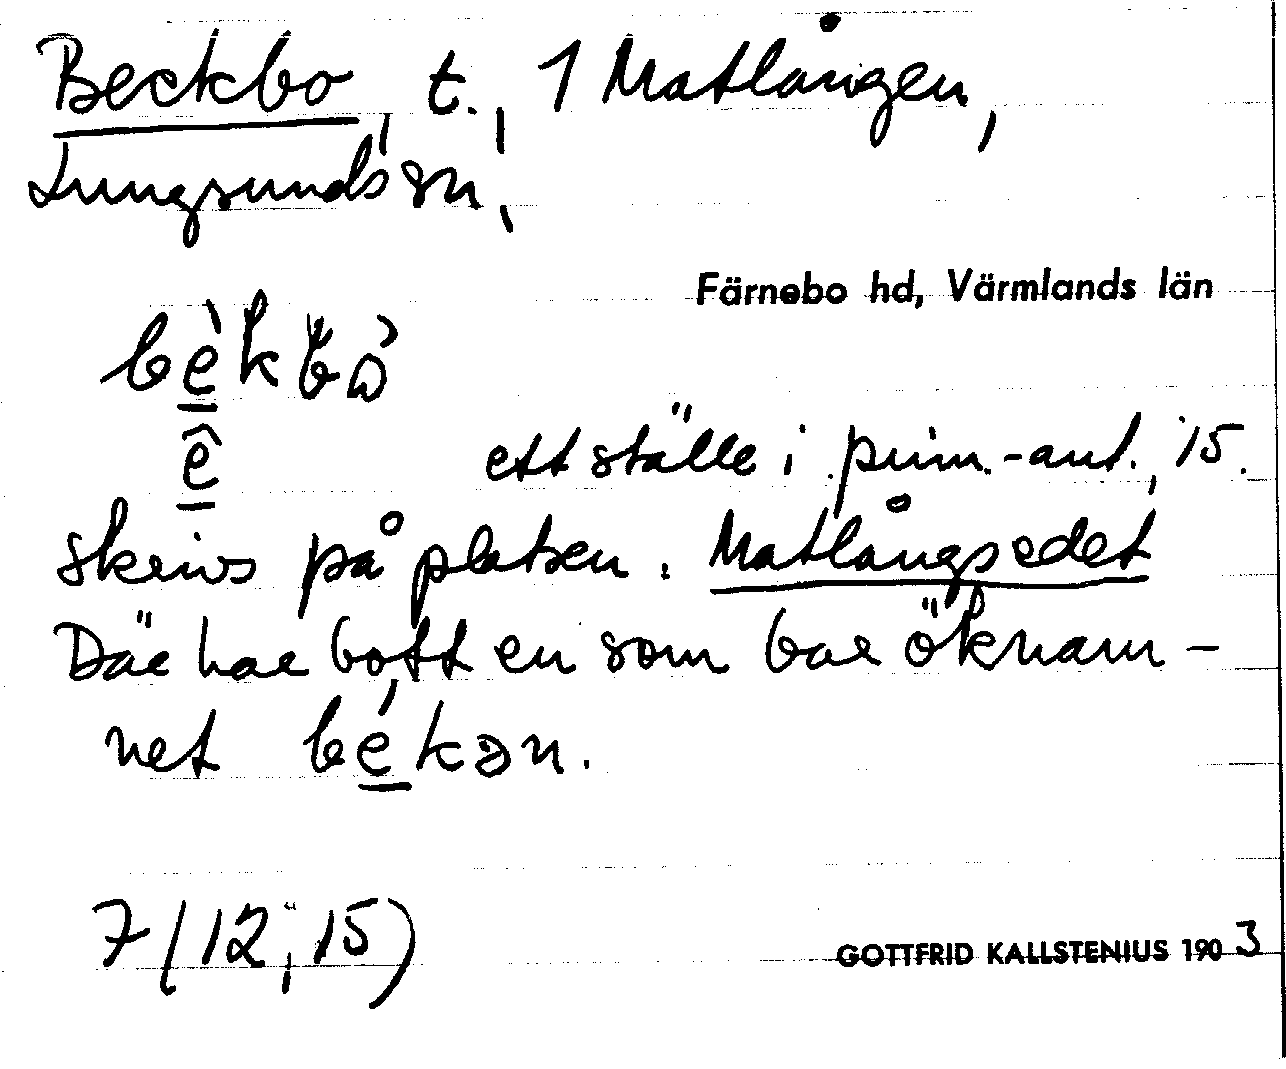 Beckbo, t., 1 Matlången,
Lungsunds sn,
Färnebo hd, Värmlands län
bèkbò
ê ett ställe i prim.-ant., 15.
skrivs på platsen. Matlångsedet
Där har bott en som bar öknam-
net békən.
7 (12, 15)
GOTTFRID KALLSTENIUS 1903